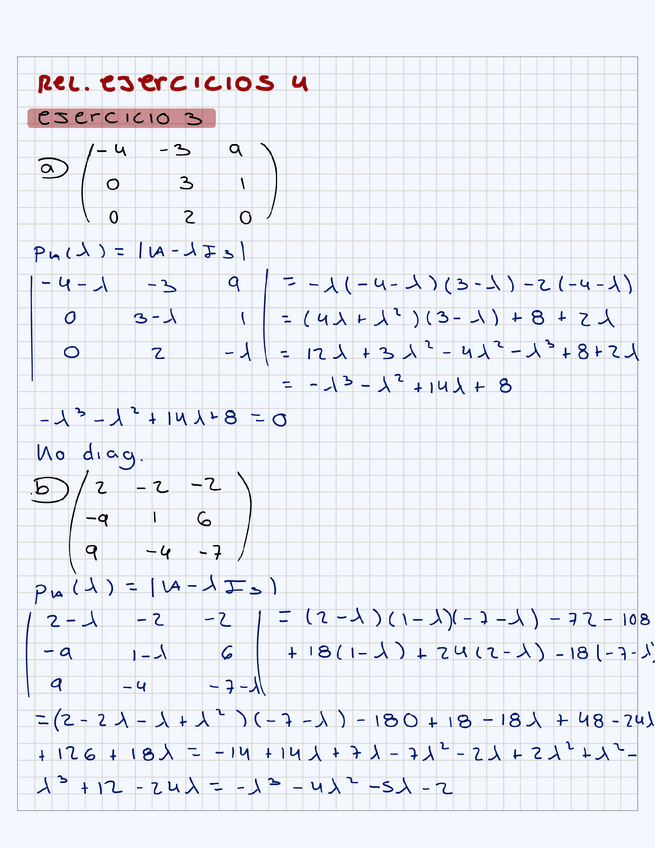 Rel. ejercicios 4
ejercicio 3
a) (-4 -3 9
0 3 1
0 2 0)
PA(λ) = |A-λI3|
|-4-λ -3 9| = -λ(-4-λ)(3-λ)-2(-4-λ)
0 3-λ 1 = (4λ+λ²)(3-λ)+8+2λ
0 2 -λ = 12λ+3λ²-4λ²-λ³+8+2λ
= -λ³-λ²+14λ+8
-λ³-λ²+14λ+8 = 0
No diag.
b) (2 -2 -2
-9 1 6
9 -4 -7)
PA(λ) = |A-λI3|
|2-λ -2 -2| = (2-λ)(1-λ)(-7-λ)-72-108
-9 1-λ 6 +18(1-λ)+24(2-λ)-18(-7-λ)
9 -4 -7-λ
=(2-2λ-λ+λ²)(-7-λ)-180+18-18λ+48-24λ
+126+18λ = -14+14λ+7λ-7λ²-2λ+2λ²+λ²-
λ³+12-24λ = -λ³-4λ²-5λ-2